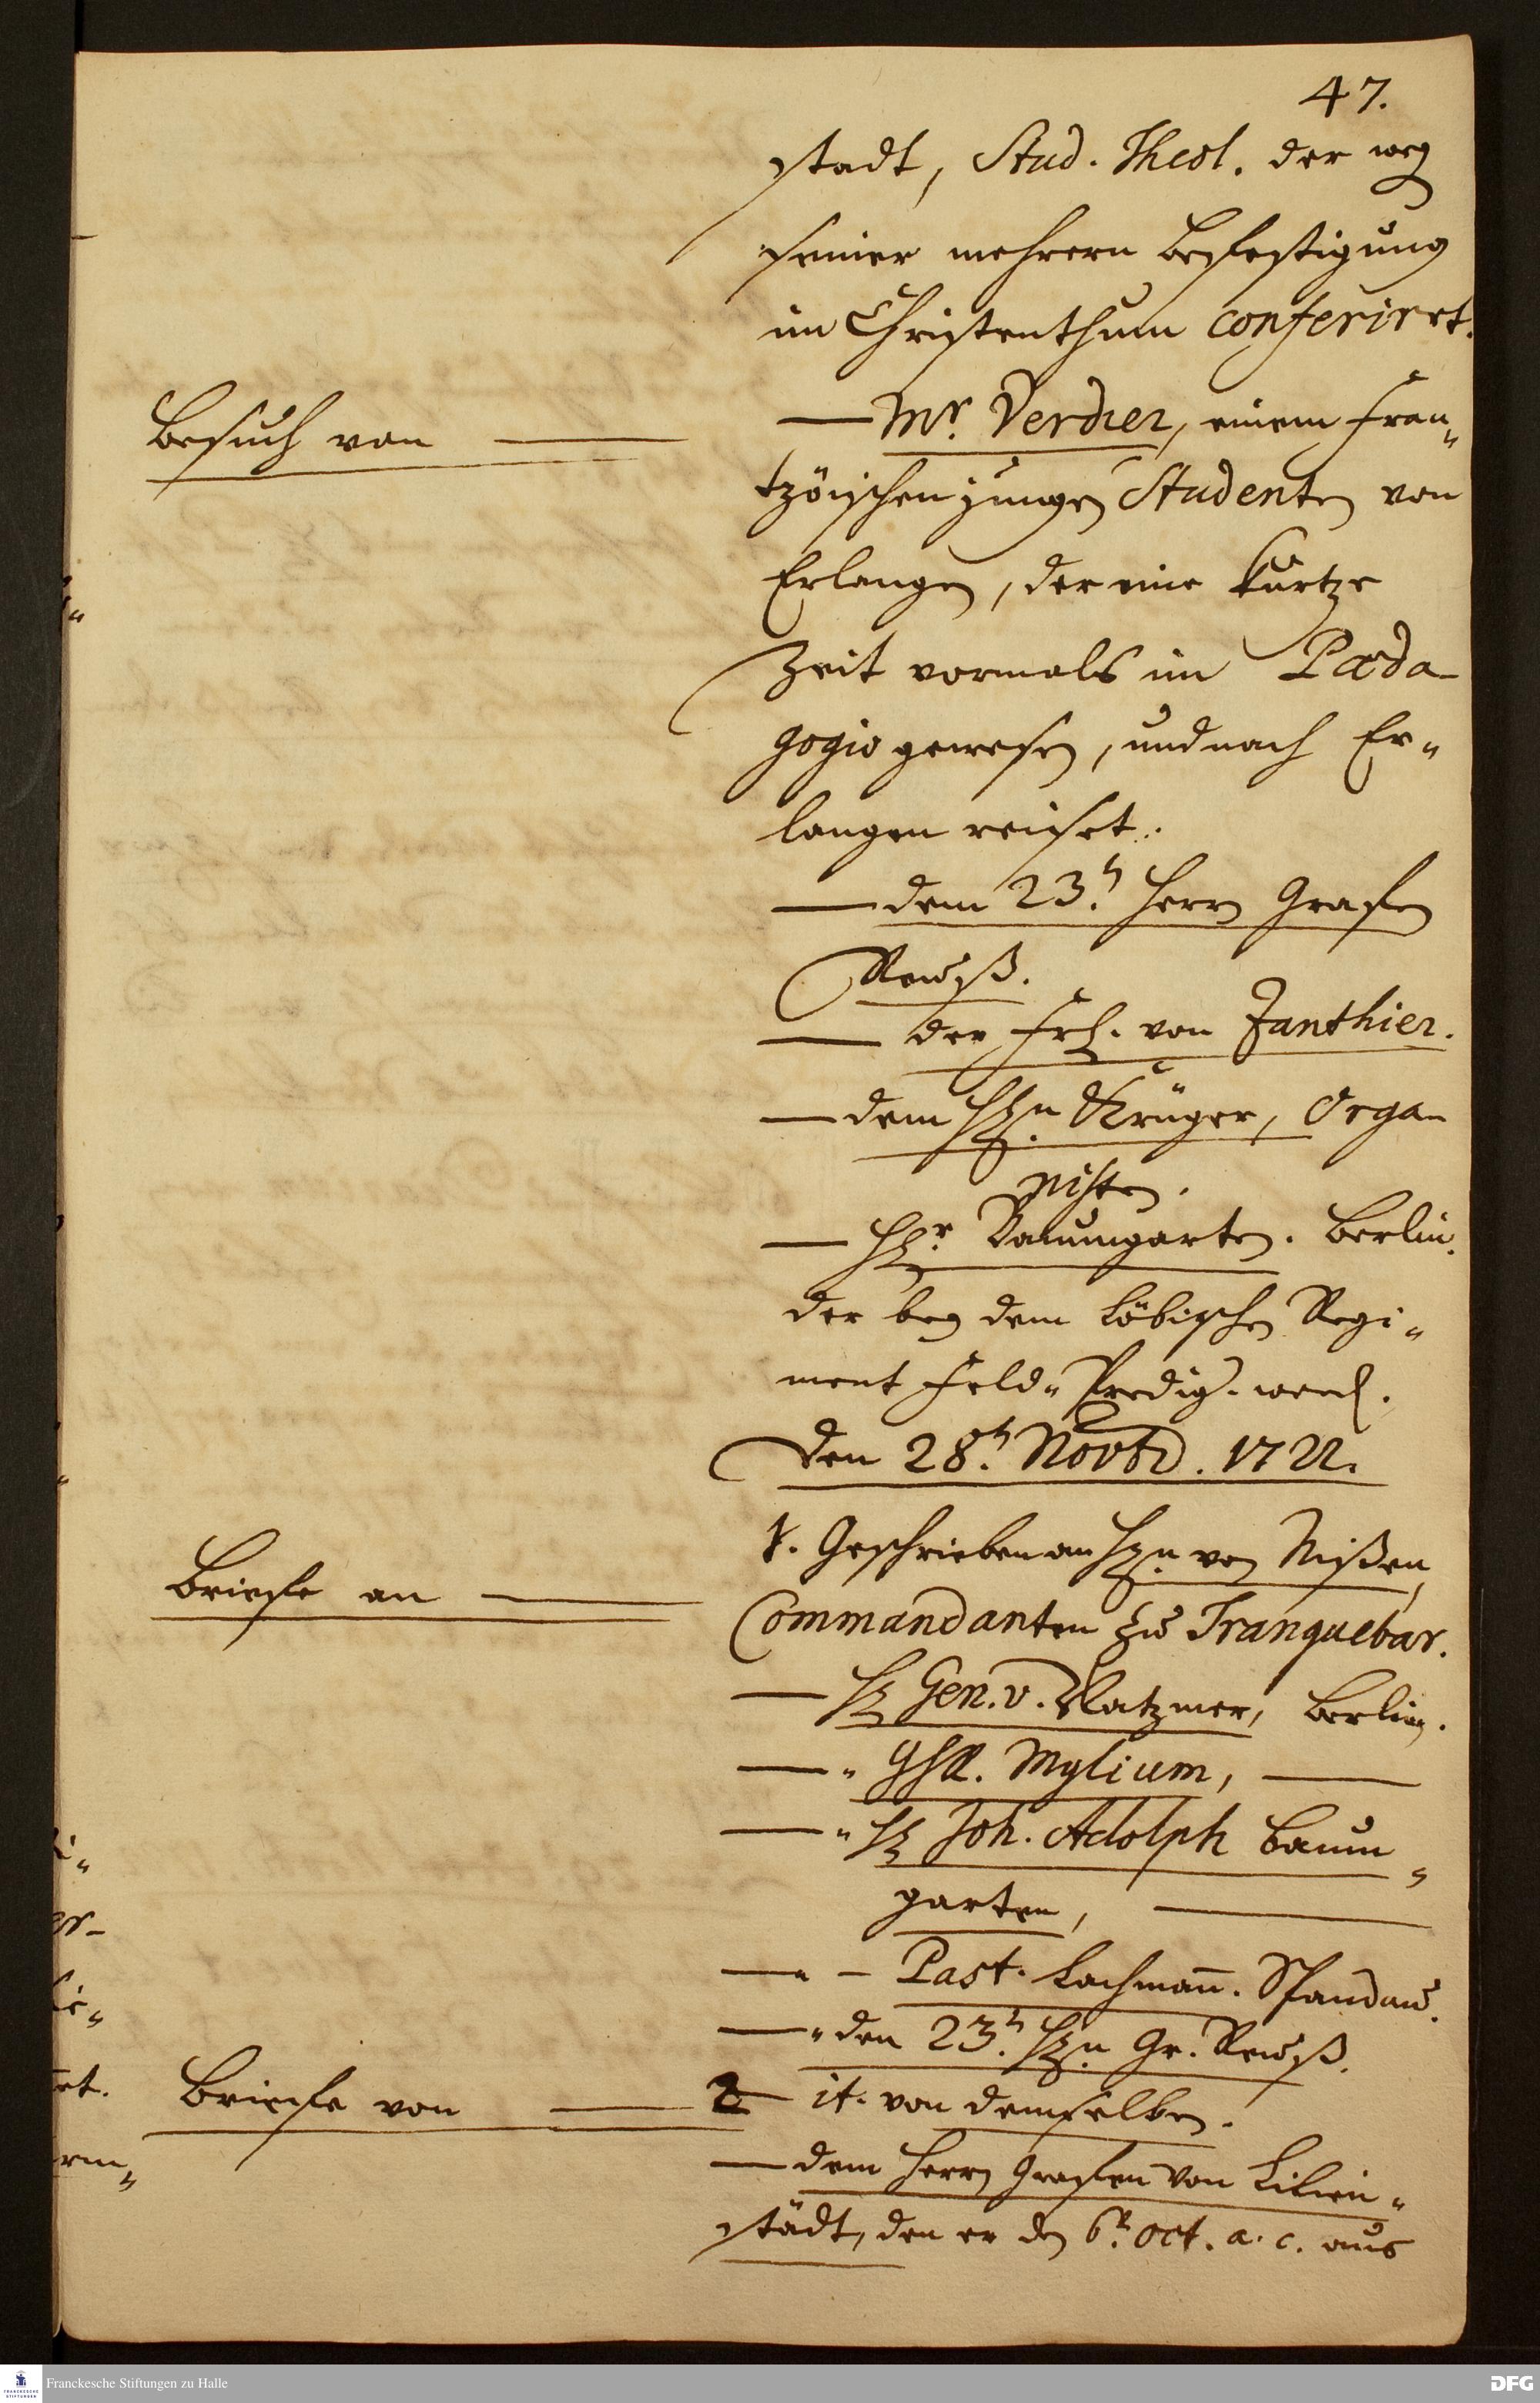 47.
stadt, Stud. Theol. der weg
seiner mehrern Befestigung
im Christenthum conferiret.
Besuch von — — Mr. Verdier, einem Fran„
tzöischen jungen Studenten von
Erlangen, der eine kurtze
Zeit vormals im Pæda-
gogio gewesen, und nach Er„
langen reiset.
— dem 23.t Herrn Grafen
Reuß.
— der Frl. von Zanthier.
— dem HEn. Krüger, Orga-
nisten.
— HEr. Baumgarten. Berlin.
der bey dem Löbischen Regi„
ment Feld„ Predig. werd.
Den 28.t Novbr. 1722.
Briefe an — 1. Geschrieben an HEn. von Nißen,
Commandanten zu Tranquebar.
— HE Gen. v. Natzmer, Berlin.
— „ GhR. Mylium, —
— „ HE Joh. Adolph Baum„
garten, —
— „ — Past. Lachmañ. Spandau.
— „ den 23.t HEn. Gr. Reuß.
Briefe von — 2 — it. von demselben.
— dem Herrn Grafen von Lilien„
städt, den er den 6.t Oct. a. c. aus
Franckesche Stiftungen zu Halle
DFG